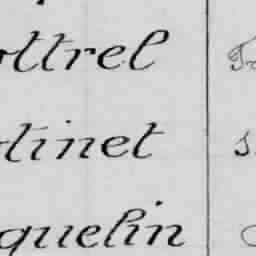 ottrel
tinet
quelin